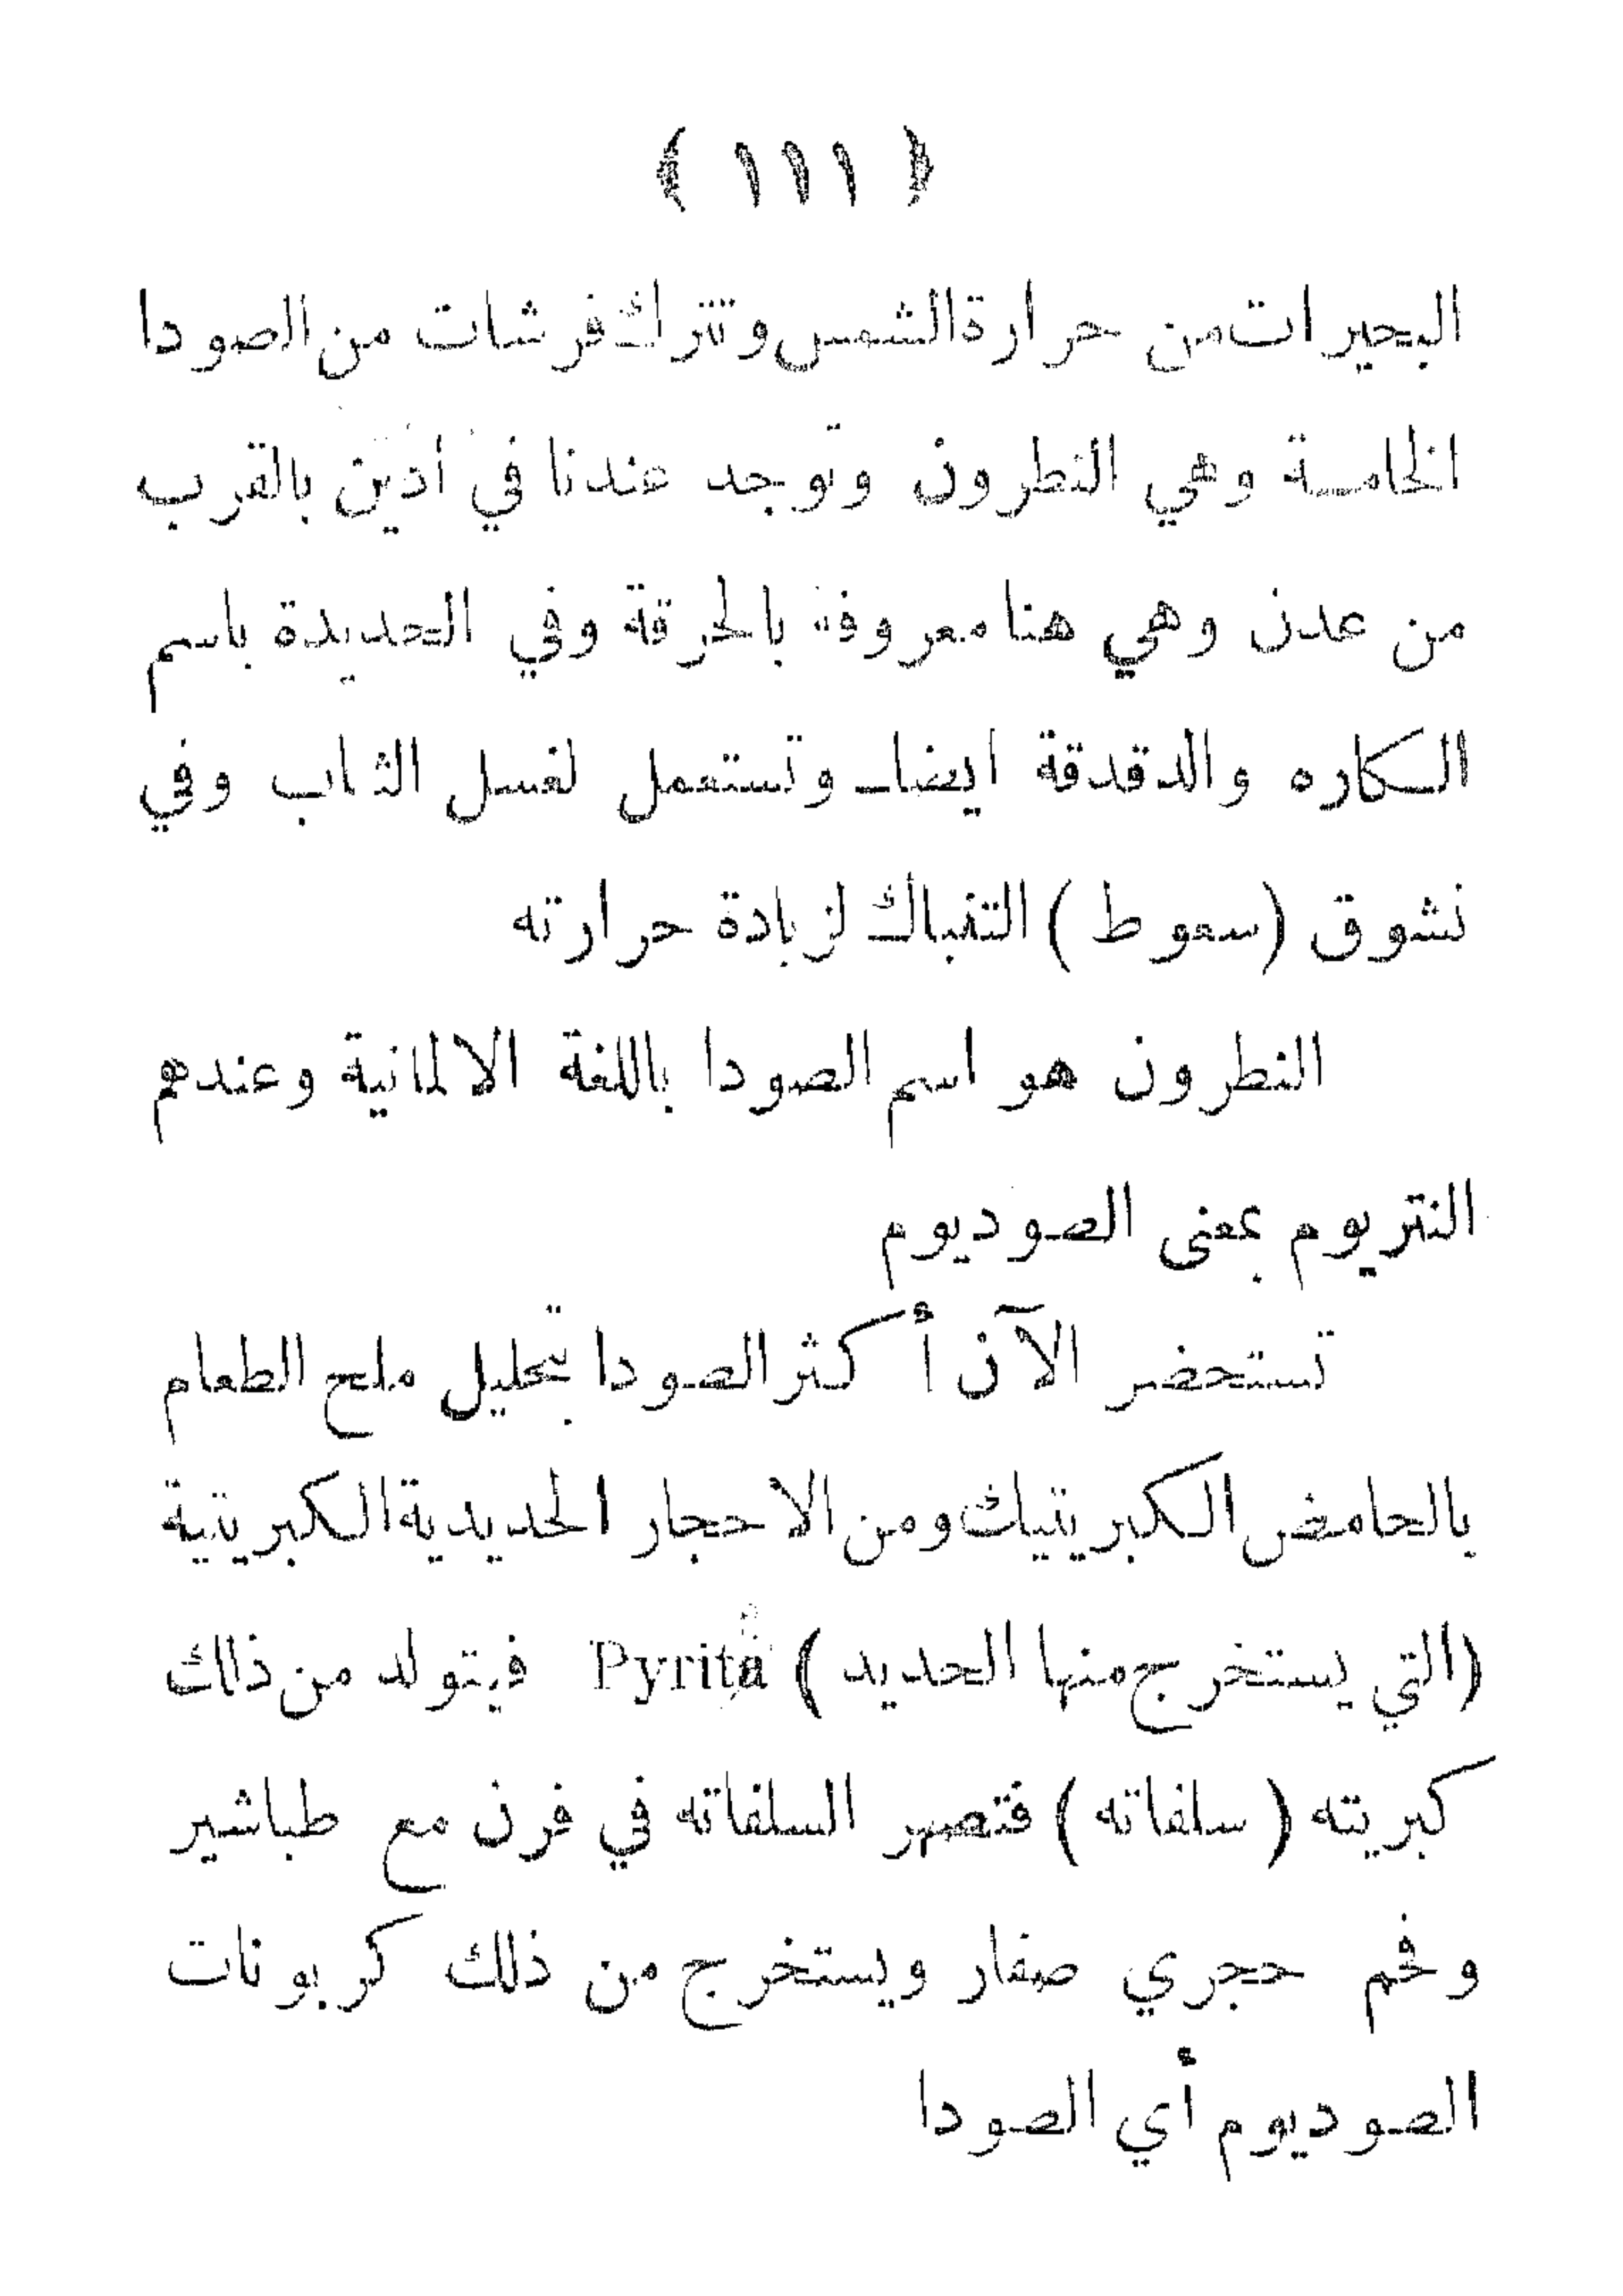 ﴿ ١١١ ﴾
البحيرات من حرارة الشمس وتترك فرشات من الصودا
الخامسة وهي النطرون وتوجد عندنا في أدين بالقرب
من عدن وهي هنا معروفة بالحرقة وفي الحديدة باسم
الكاره والدقدقة ايضا وتستعمل لغسل الثياب وفي
نشوق (سعوط) التنباك لزيادة حرارته
النطرون هو اسم الصودا باللغة الالمانية وعندهم
النتريوم بمعنى الصوديوم
تستحضر الآن أكثر الصودا بتحليل ملح الطعام
بالحامض الكبريتيك ومن الاحجار الحديدية الكبريتية
(التي يستخرج منها الحديد) Pyrita فيتولد من ذلك
كبريته (سلفاته) فتصهر السلفاته في فرن مع طباشير
وفحم حجري صغار ويستخرج من ذلك كربونات
الصوديوم أي الصودا